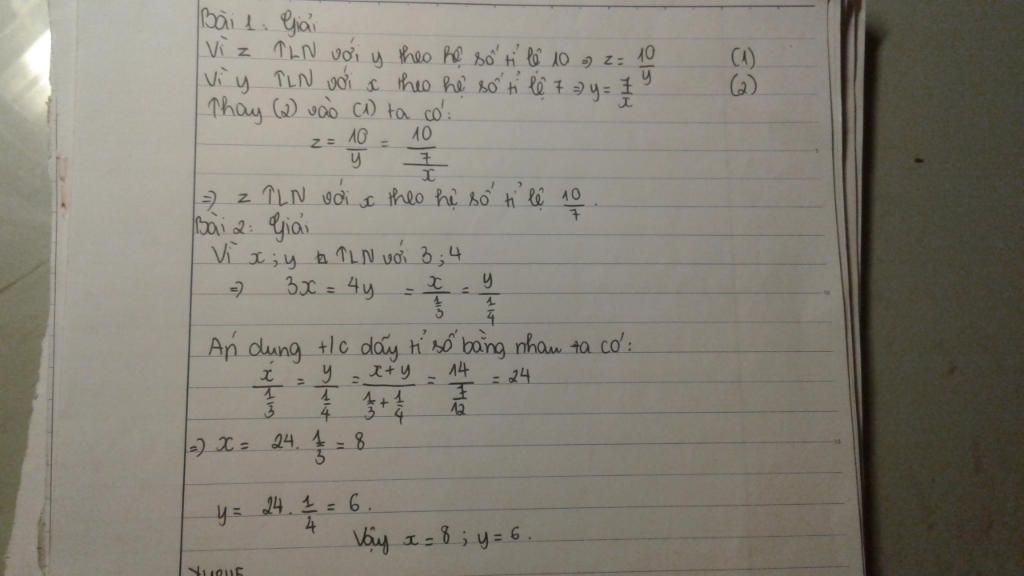 Bài 1: Giải
Vì z TLN với y theo hệ số tỉ lệ 10 ⇒ z = 10/y (1)
Vì y TLN với x theo hệ số tỉ lệ 7 ⇒ y = 7/x (2)
Thay (2) vào (1) ta có:
z = 10/y = 10/(7/x)
⇒ z TLN với x theo hệ số tỉ lệ 10/7.
Bài 2: Giải
Vì x; y TLN với 3; 4
⇒ 3x = 4y = x/(1/3) = y/(1/4)
Áp dung t/c dãy tỉ số bằng nhau ta có:
x/(1/3) = y/(1/4) = (x+y)/(1/3+1/4) = 14/(7/12) = 24
⇒ x = 24. 1/3 = 8
y = 24. 1/4 = 6.
Vậy x = 8; y = 6.